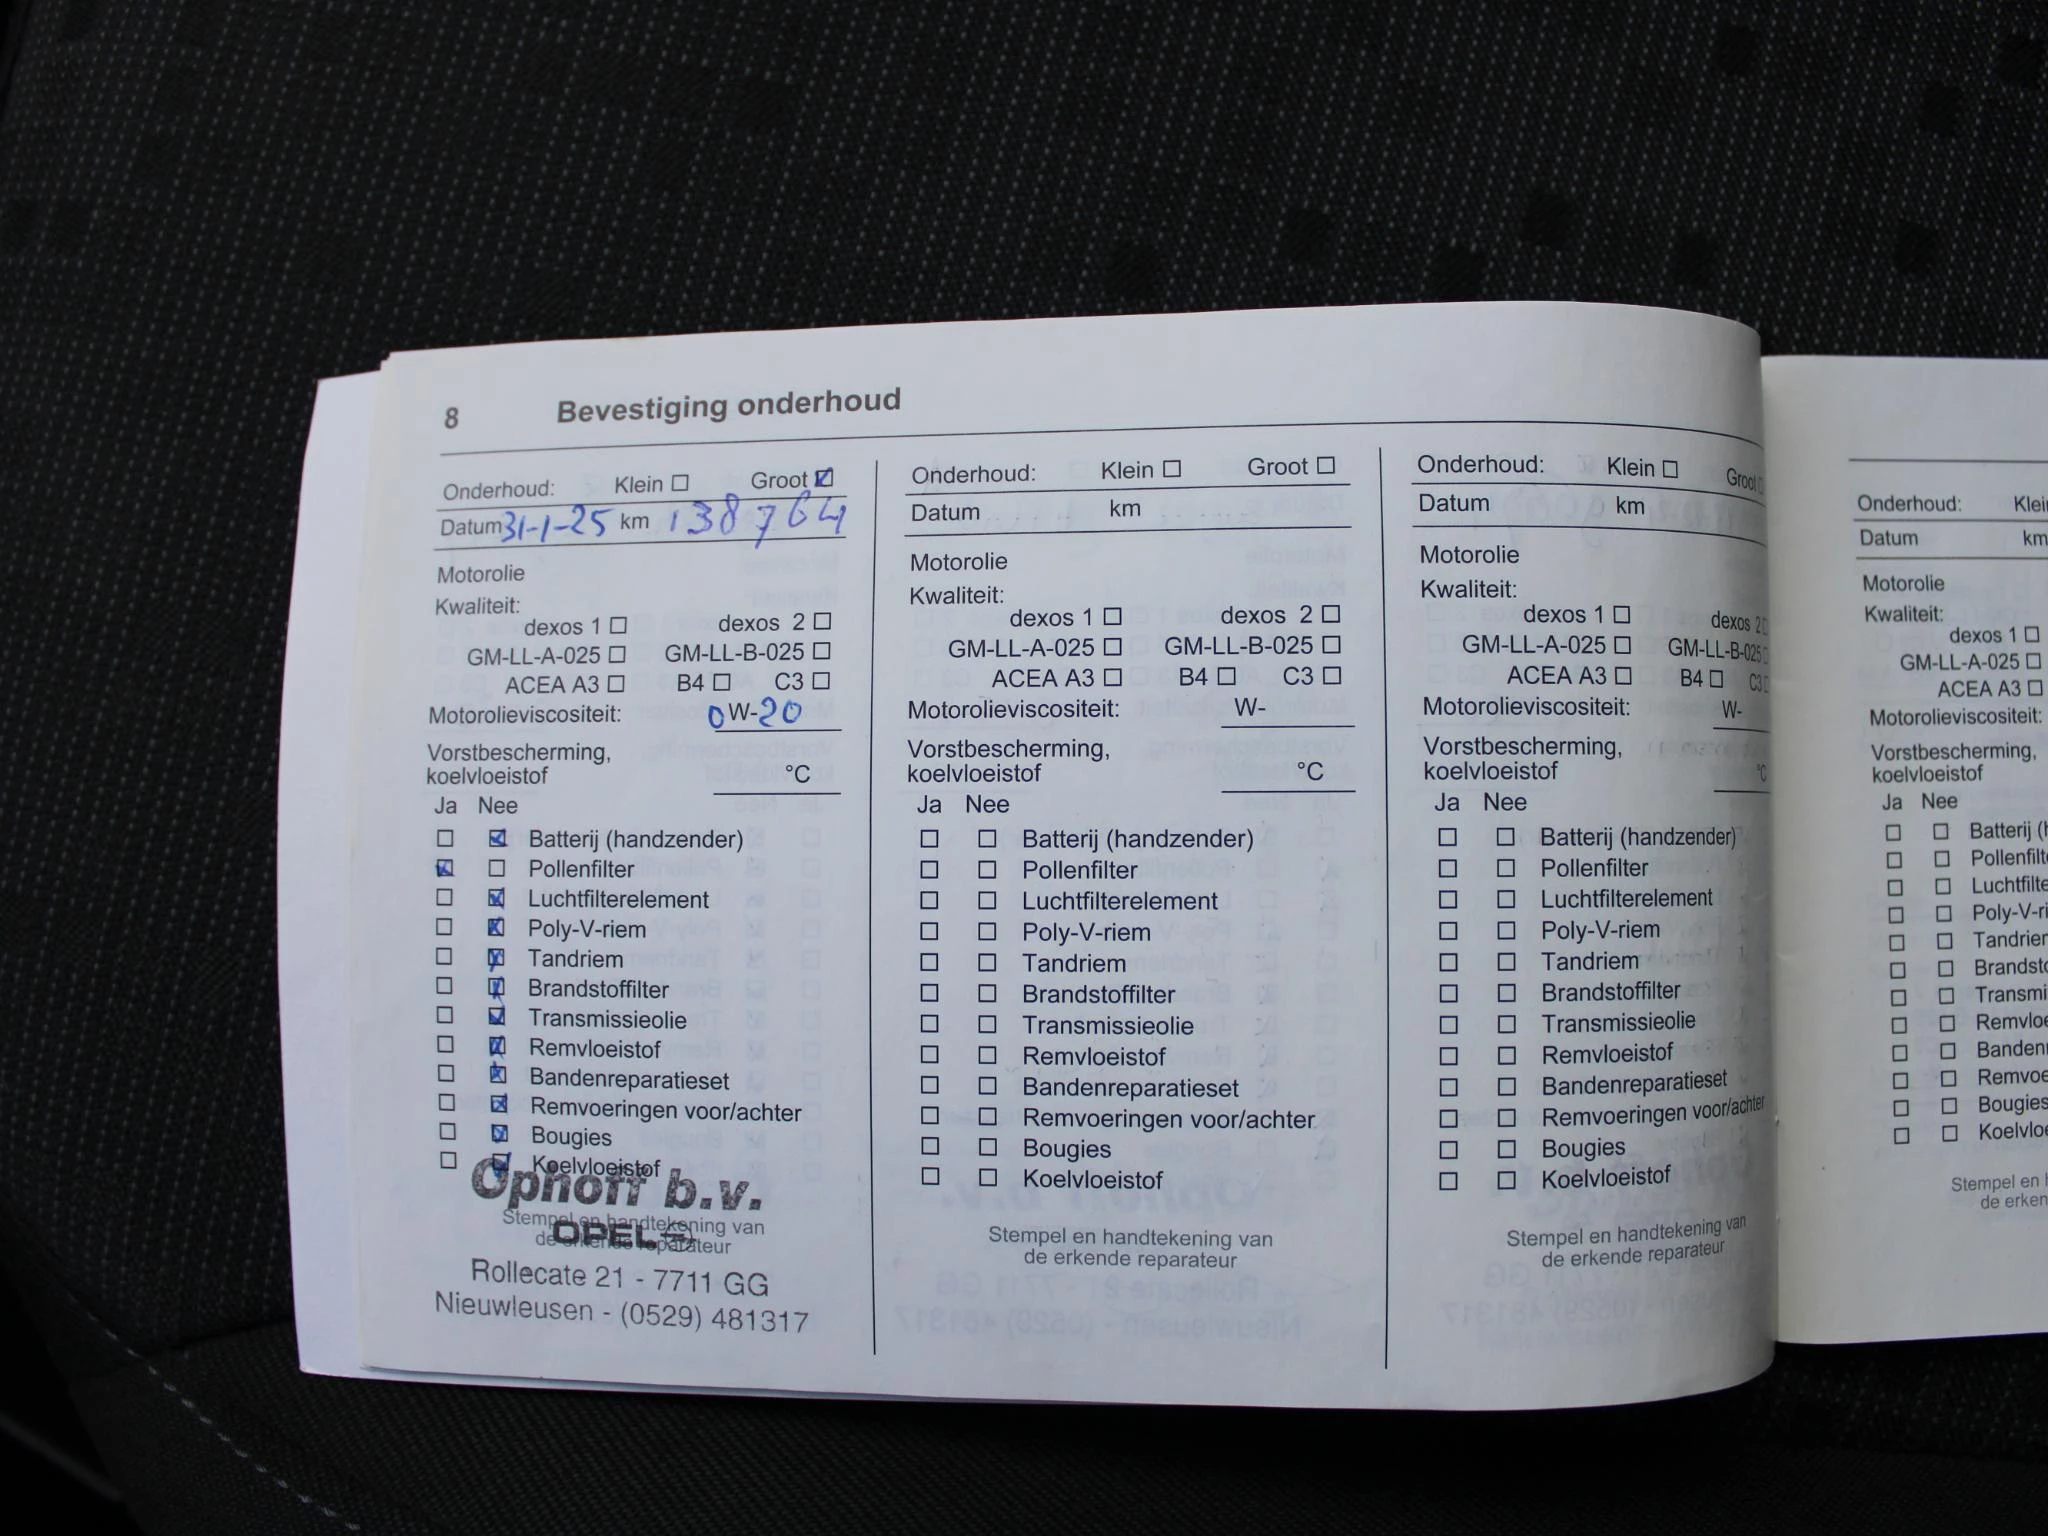 8 Bevestiging onderhoud
Onderhoud: Klein ☐ Groot ☑
Datum 31-1-25 km 138764
Motorolie
Kwaliteit:
dexos 1 ☐ dexos 2 ☐
GM-LL-A-025 ☐ GM-LL-B-025 ☐
ACEA A3 ☐ B4 ☐ C3 ☐
Motorolieviscositeit: 0W-20
Vorstbescherming,
koelvloeistof °C
Ja Nee
☐ ☑ Batterij (handzender)
☑ ☐ Pollenfilter
☐ ☑ Luchtfilterelement
☐ ☑ Poly-V-riem
☐ ☑ Tandriem
☐ ☑ Brandstoffilter
☐ ☑ Transmissieolie
☐ ☑ Remvloeistof
☐ ☑ Bandenreparatieset
☐ ☑ Remvoeringen voor/achter
☐ ☑ Bougies
☐ ☑ Koelvloeistof
Ophoff b.v.
Stempel en handtekening van
OPEL
de erkende reparateur
Rollecate 21 - 7711 GG
Nieuwleusen - (0529) 481317
Onderhoud: Klein ☐ Groot ☐
Datum km
Motorolie
Kwaliteit:
dexos 1 ☐ dexos 2 ☐
GM-LL-A-025 ☐ GM-LL-B-025 ☐
ACEA A3 ☐ B4 ☐ C3 ☐
Motorolieviscositeit: W-
Vorstbescherming,
koelvloeistof °C
Ja Nee
☐ ☐ Batterij (handzender)
☐ ☐ Pollenfilter
☐ ☐ Luchtfilterelement
☐ ☐ Poly-V-riem
☐ ☐ Tandriem
☐ ☐ Brandstoffilter
☐ ☐ Transmissieolie
☐ ☐ Remvloeistof
☐ ☐ Bandenreparatieset
☐ ☐ Remvoeringen voor/achter
☐ ☐ Bougies
☐ ☐ Koelvloeistof
Stempel en handtekening van
de erkende reparateur
Onderhoud: Klein ☐ Groot ☐
Datum km
Motorolie
Kwaliteit:
dexos 1 ☐ dexos 2 ☐
GM-LL-A-025 ☐ GM-LL-B-025 ☐
ACEA A3 ☐ B4 ☐ C3 ☐
Motorolieviscositeit: W-
Vorstbescherming,
koelvloeistof °C
Ja Nee
☐ ☐ Batterij (handzender)
☐ ☐ Pollenfilter
☐ ☐ Luchtfilterelement
☐ ☐ Poly-V-riem
☐ ☐ Tandriem
☐ ☐ Brandstoffilter
☐ ☐ Transmissieolie
☐ ☐ Remvloeistof
☐ ☐ Bandenreparatieset
☐ ☐ Remvoeringen voor/achter
☐ ☐ Bougies
☐ ☐ Koelvloeistof
Stempel en handtekening van
de erkende reparateur
Onderhoud: Klei
Datum km
Motorolie
Kwaliteit:
dexos 1 ☐
GM-LL-A-025 ☐
ACEA A3 ☐
Motorolieviscositeit:
Vorstbescherming,
koelvloeistof
Ja Nee
☐ ☐ Batterij (h
☐ ☐ Pollenfilte
☐ ☐ Luchtfilte
☐ ☐ Poly-V-ri
☐ ☐ Tandrien
☐ ☐ Brandsto
☐ ☐ Transmi
☐ ☐ Remvloe
☐ ☐ Banden
☐ ☐ Remvoe
☐ ☐ Bougies
☐ ☐ Koelvloe
Stempel en h
de erken